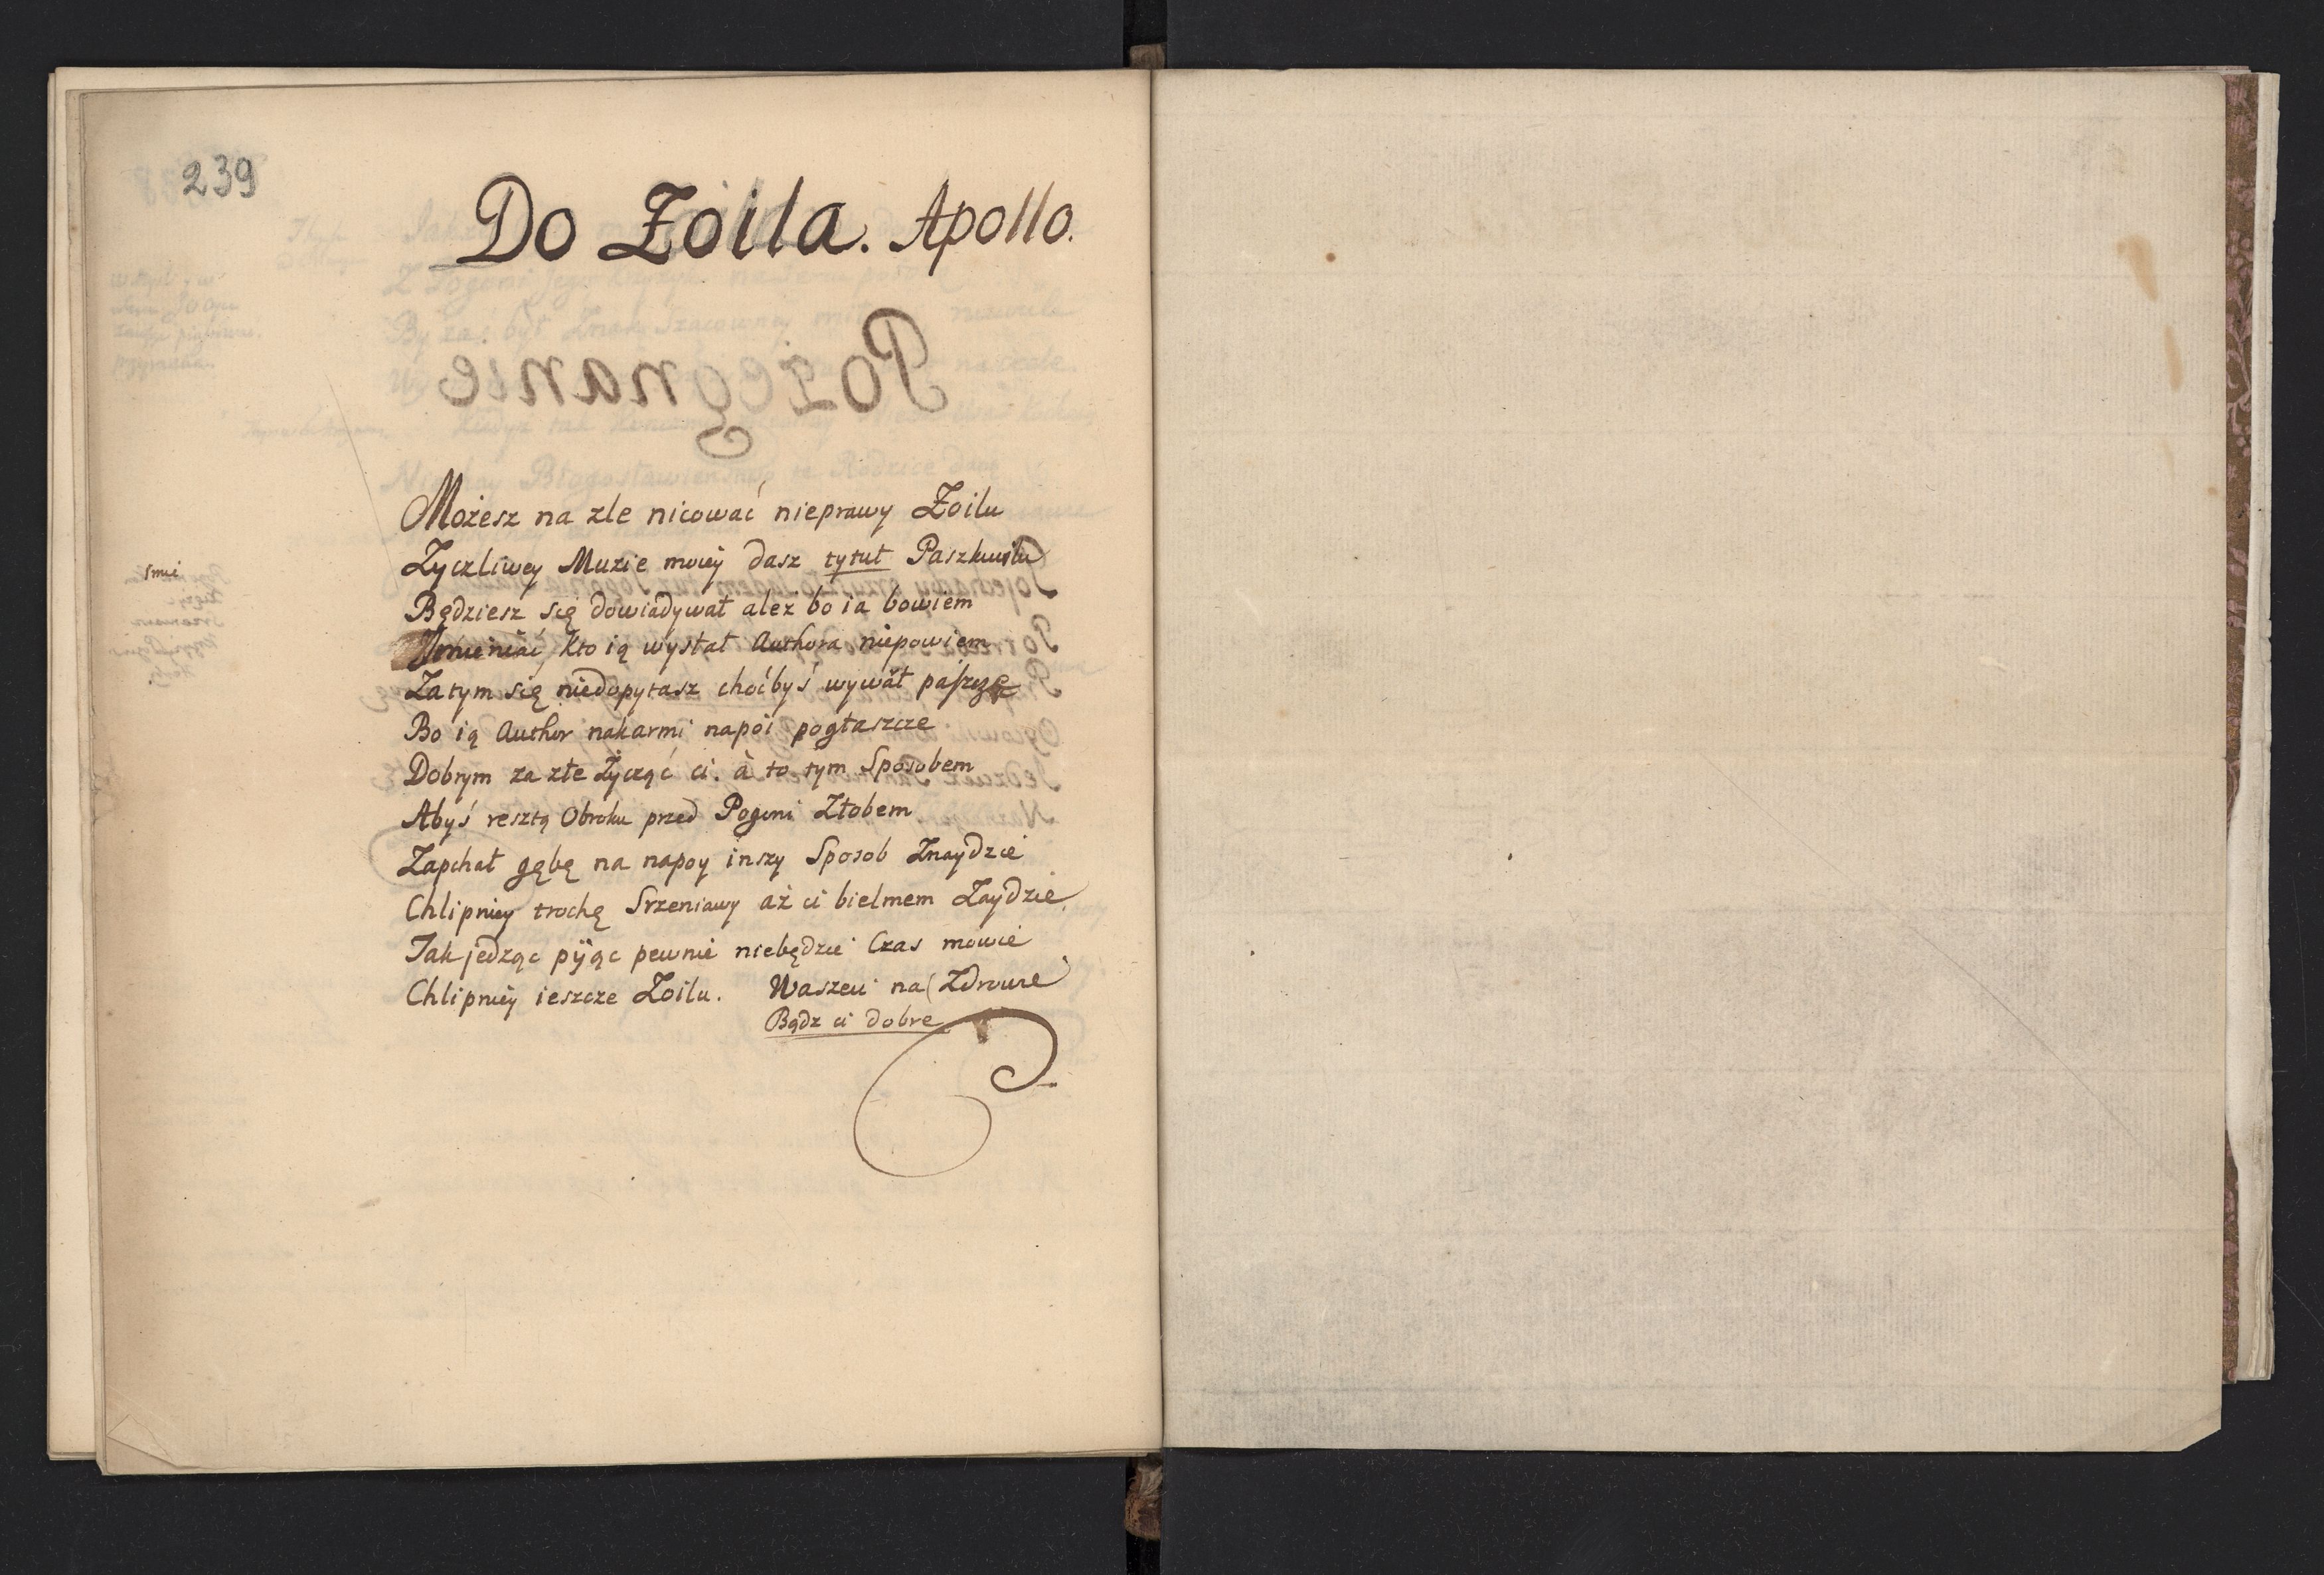 239
Do Zoila. Apollo.
Możesz na zle nicować nieprawy Zoilu
Zyczliwey Muzie moiey dasz tytuł Paszkwilu
Imie
Będziesz się dowiadywał ależ bo ia bowiem
kto ią wysłał Authora niepowiem
Zatym się niedopytasz choćbyś wywał paszczę
Bo ią Author nakarmi napoi pogłaszcze
Dobrym za złe życząc ci. à to tym Sposobem
Abyś resztą Obroku przed Pogoni Złobem
Zapchał gębę na napoy inszy Sposob Znaydzie
Chlipniey trochę Srzeniawy aż ci bielmem Zaydzie
Tak jedząc pijąc pewnie niebędzie Czas mowie
Chlipniey ieszcze Zoilu. Waszeci na Zdrowie
Bądz ci dobre